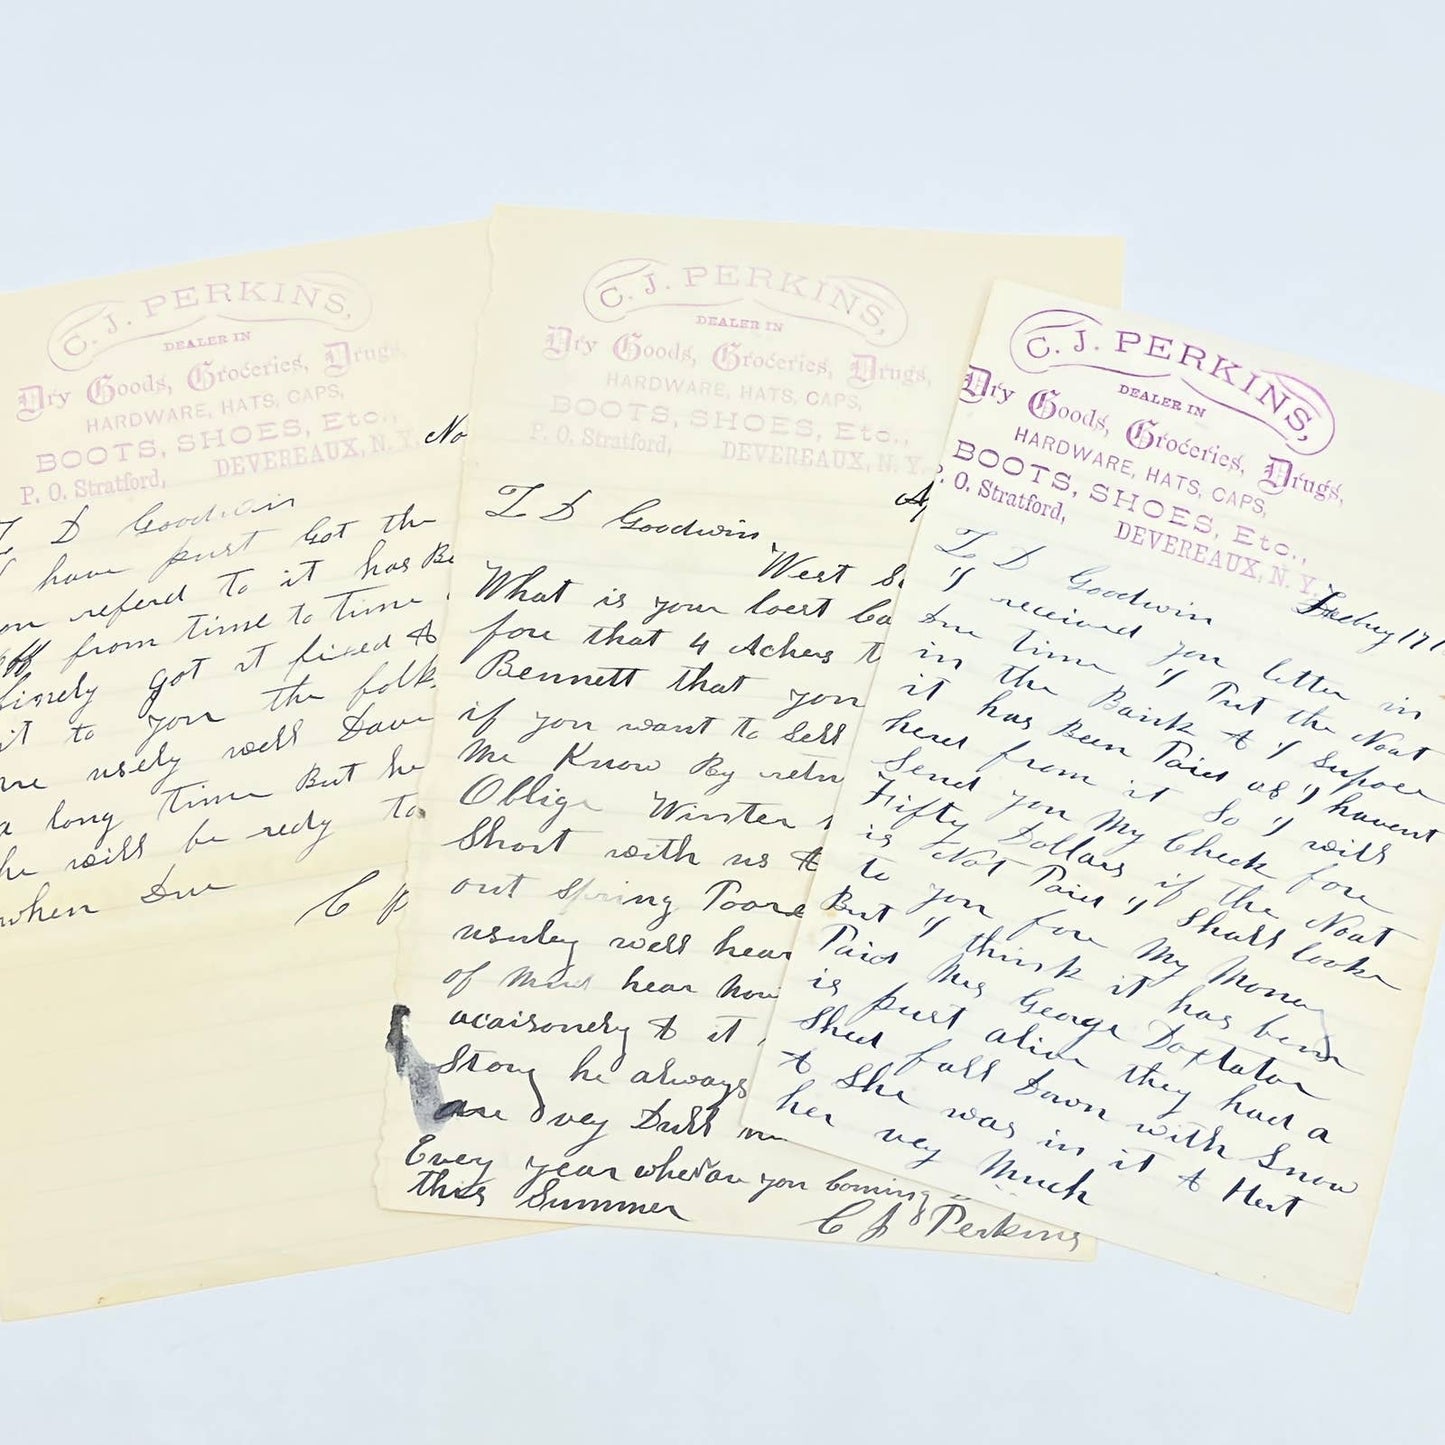 C. J. PERKINS,
DEALER IN
Dry Goods, Groceries, Drugs,
HARDWARE, HATS, CAPS,
BOOTS, SHOES, Etc.,
P. O. Stratford, DEVEREAUX, N. Y.
No
L D Goodwin
I have just Got the
on referd to it has Be
off from time to time
finely got it fixed &
it to you the folk
are usely well Dave
a long time But he
he will be redy to
when Due
C P
C. J. PERKINS,
DEALER IN
Dry Goods, Groceries, Drugs,
HARDWARE, HATS, CAPS,
BOOTS, SHOES, Etc.,
P. O. Stratford, DEVEREAUX, N. Y.
Ap
L D Goodwin
West S
What is your loest Ca
fore that 4 Achers t
Bennett that you
if you want to Sell
Me Know By retur
Oblige Winter
Short with us &
out Spring Poore
usuley well hear
of Mind hear Now
acaisonely & it
Story he always
are vey Dull
Evey year whear you Coming
this Summer
C J Perkins
C. J. PERKINS,
DEALER IN
Dry Goods, Groceries, Drugs,
HARDWARE, HATS, CAPS,
BOOTS, SHOES, Etc.,
P. O. Stratford, DEVEREAUX, N. Y.
Frebuy 17
L D Goodwin
I received you letter in
Due time I Put the Noat
in the Bank & I Supose
it has Been Paid as I havent
herd from it So I will
Send you My Check fore
Fifty Dollars if the Noat
is Not Paid I Shall looke
to you fore My Money
But I think it has benn
Paid Mrs George Doxtator
is just alive they had a
Shed fall Down with Snow
& She was in it & Hert
her vey Much